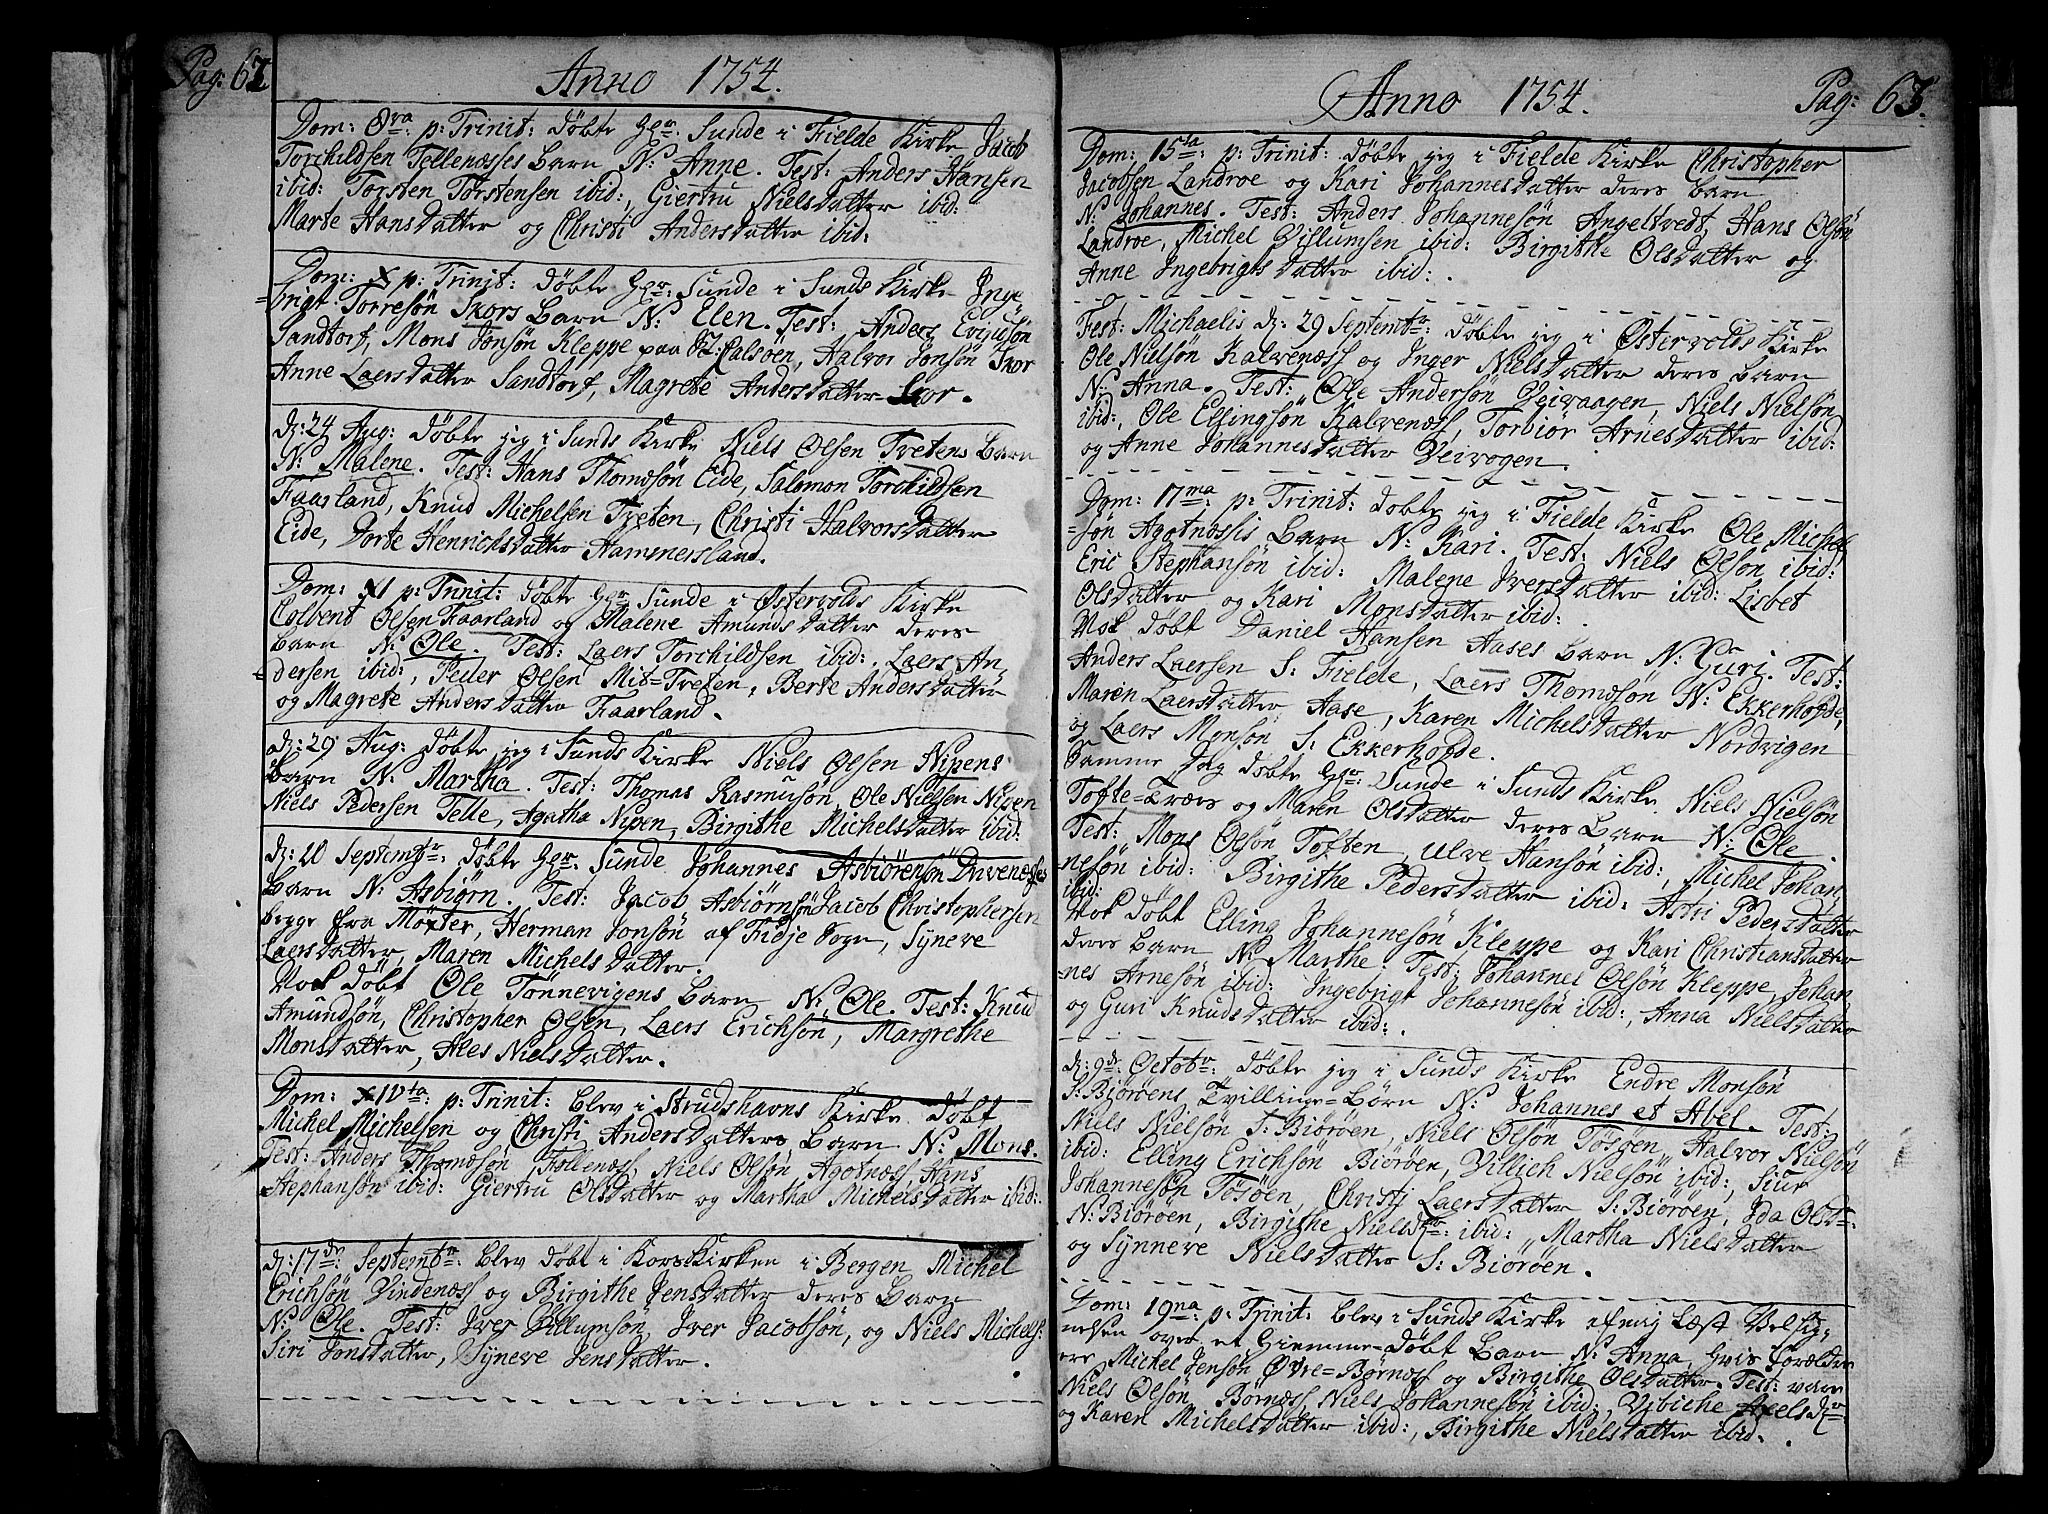 Pag: 62
Anno 1754.
Dom: 8va: p: Trinit: døbte Hgr: Sunde i Fielde Kirke Jacob
Torchildsen Tellenæsses Barn N: Anne. Test: Anders Hansen
ibid: Torsten Torstensen ibid:, Giertru Nielsdatter ibid:
Marte Hansdatter og Christi Andersdatter ibid:
Dom: X p: Trinit: døbte Hgr: Sunde i Sunds Kirke Inge
=brigt Torresøn Skors Barn N: Elen. Test: Anders
Sandtorf, Mons Jonsøn Kleppe paa Halvor Jonsøn Skor
Anne Laersdatter Sandtorf, Magrete Andersdatter Skor.
d: 24 Aug: døbte jeg i Sunds Kirke Niels Olsen Tvetens Barn
N: Malene. Test: Hans Thomæsøn Eide, Salomon Torchildsen
Faarland, Knud Michelsen Tveten, Christi Halvorsdatter
Eide, Dorte Henrichsdatter Hammersland.
Dom: XI p: Trinit: døbte Hgr: Sunde i Østervolds Kirke
Colbent Olsen Faarland og Malene Amundsdatter deres
Barn N: Ole. Test: Laers Torchildsen ibid:, Laers An=
=dersen ibid:, Peder Olsen Mit=Tveten, Berte Andersdatter
og Magrete Andersdatter Faarland.
d: 29 Aug: døbte jeg i Sunds Kirke Niels Olsen Nipens
Barn N: Martha. Test: Thomas Rasmusøn, Ole Nielsen Nipen
Niels Pedersen Telle, Agatha Nipen, Birgithe Michelsdatter ibid:
d: Septembr: døbte Hgr: Sunde Johannes Asbiörensøn Drivenesses
Barn N: Asbiørn. Test: Jacob Asbiørnsøn Jacob Christophersen
begge fra Møxter, Herman Jonsøn af Fidje Sogn, Syneve
Laersdatter, Maren Michelsdatter.
Nok døbt Ole Tønnevigens Barn N: Ole. Test: Knud
Amundsøn, Christopher Olsen, Laers Erichsøn, Margrethe
Monsdatter, Ales Nielsdatter.
Dom: XIVta: p: Trinit: blev i Strudshavns Kirke døbt
Michel Michelsen og Christi Andersdatters Barn N: Mons.
Test: Anders Thomæsøn Follenæss, Niels Olsøn Agotnæss, Hans
Stephansøn ibid: Giertru Olsdatter og Martha Michelsdatter ibid:
d: 17de: Septembr: blev døbt i KorsKirken i Bergen Michel
Erichsøn Vindenæss og Birgithe Jensdatter deres Barn
N: Ole. Test: Iver Villumsøn, Iver Jacobsøn, og Niels Michels:
Siri Jonsdatter, Syneve Jensdatter.
Anno 1754. Pag: 63.
Dom: 15ta: p: Trinit: døbte jeg i Fielde Kirke Christopher
Jacobsen Landroe og Kari Johannesdatter deres Barn
N: Johannes. Test: Anders Johannesøn Angeltvedt, Hans Olsøn
Landroe, Michel Villumsen ibid: Birgithe Olsdatter og
Anne Ingebrigtsdatter ibid:.
Fest: Michaelis d: 29 Septembr: døbte jeg i Østervolds Kirke
Ole Nielsøn Kalvenæss og Inger Nielsdatter deres Barn
N: Anna. Test: Ole Andersøn Veivaagen, Niels Nielsøn
ibid:, Ole Ellingsøn Kalvenæss, Torbiør Arnesdatter ibid:
og Anne Johannesdatter Veivogen.
Dom: 17ma: p: Trinit: døbte jeg i Fielde Kirke Ole Michel
=søn Agotnæssis Barn N: Kari. Test: Niels Olsøn ibid:
Eric Stephansøn ibid: Malene Iversdatter ibid: Lisbet
Olsdatter og Kari Monsdatter ibid:.
Nok døbt Daniel Hansen Aases Barn N: Guri. Test:
Anders Laersen S: Fielde, Laers Thomæsøn N: Ekkerhofde,
Maren Laersdatter Aase, Karen Michelsdatter Nordvigen
og Laers Monsøn S: Ekkerhofde.
Samme Dag døbte Hgr: Sunde i Sunds Kirke Niels Nielsøn
Tofte=Træes og Maren Olsdatter deres Barn N: Ole.
Test: Mons Olsøn Toften, Ulve Hansøn ibid:, Michel Johan=
nesøn ibid: Birgithe Pedersdatter ibid: Astri Pedersdatter
ibid:
Nok døbt Elling Johannesøn Kleppe og Kari Christiansdatter
deres Barn N: Marthe. Test: Johannes Olsøn Kleppe, Johan=
=nes Arnesøn ibid: Ingebrigt Johannesøn ibid:, Anna Nielsdatter
og Guri Knudsdatter ibid:.
d: 9de: Octobr: døbte jeg i Sunds Kirke Endre Monsøn
S: Biörøens Tvillinge=Børn N: Johannes et Abel. Test:
Niels Nielsøn S: Biörøen, Niels Olsøn Tösøen, Halvor Nielsøn
ibid: Elling Erichsøn Biörøen, Villich Nielsøn ibid:, Siur
Johannesøn Tösøen, Christj Laersdatter S: Biörøen, Ida Olsd=
N: Biörøen, Birgithe Nielsdr: ibid:, Martha Nielsdatter
og Synneve Nielsdatter S: Biörøen.
Dom: 19na: p: Trinit: blev i Sunds Kirke af mig læst Velsig=
nelsen over et Hiemme=døbt Barn N: Anna, hvis Forældre
ere Michel Jensøn Øvre=Børnæss og Birgithe Olsdatter. Test: vare
Niels Olsøn Børnæss, Niels Johannesøn ibid:, Vibiche Axelsdr
og Karen Michelsdatter ibid:, Birgithe Nielsdatter ibid:.